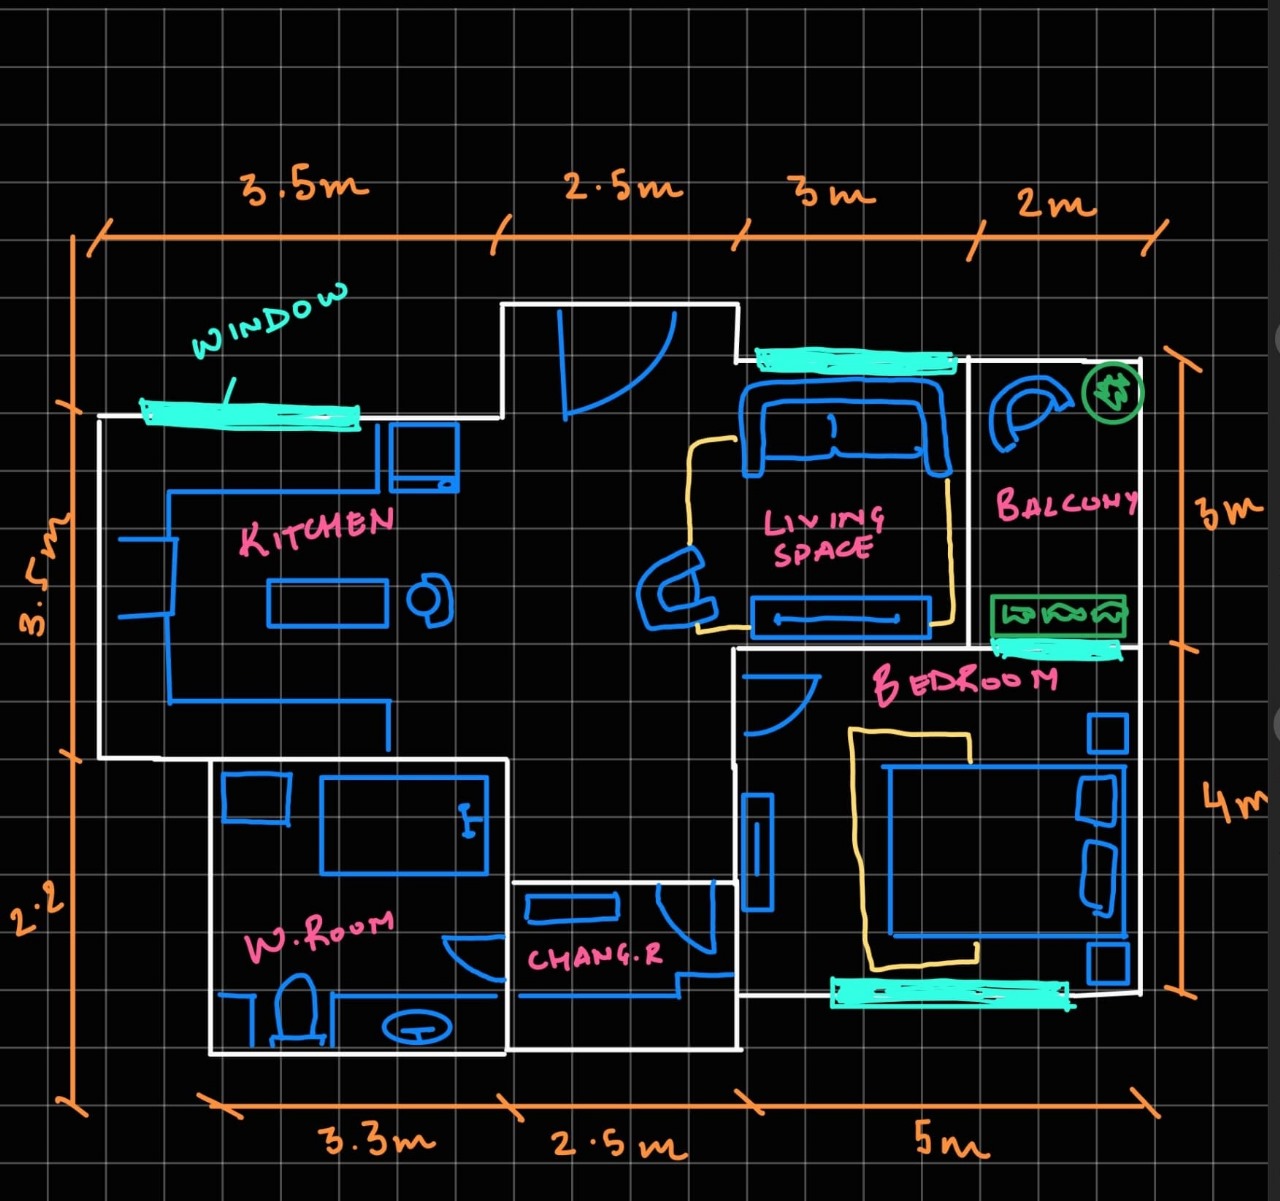 3.5m
2.5m
3m
2m
WINDOW
KITCHEN
LIVING
SPACE
BALCONY
3m
3.5m
BEDROOM
4m
2.2
W.ROOM
CHANG.R
3.3m
2.5m
5m